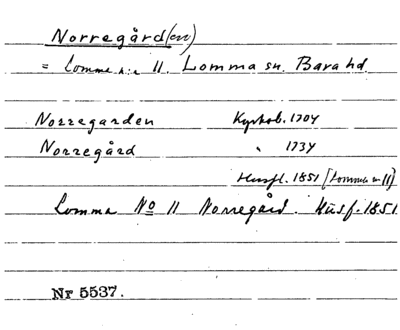 Norregård(en)
= Lomma n:r 11. Lomma sn. Bara hd
Norregarden Kyrkob. 1704
Norregård " 1734
Husfl. 1851 [Lomma nr 11]
Lomma No 11 Norregård. Husf. 1851
Nr 5537.